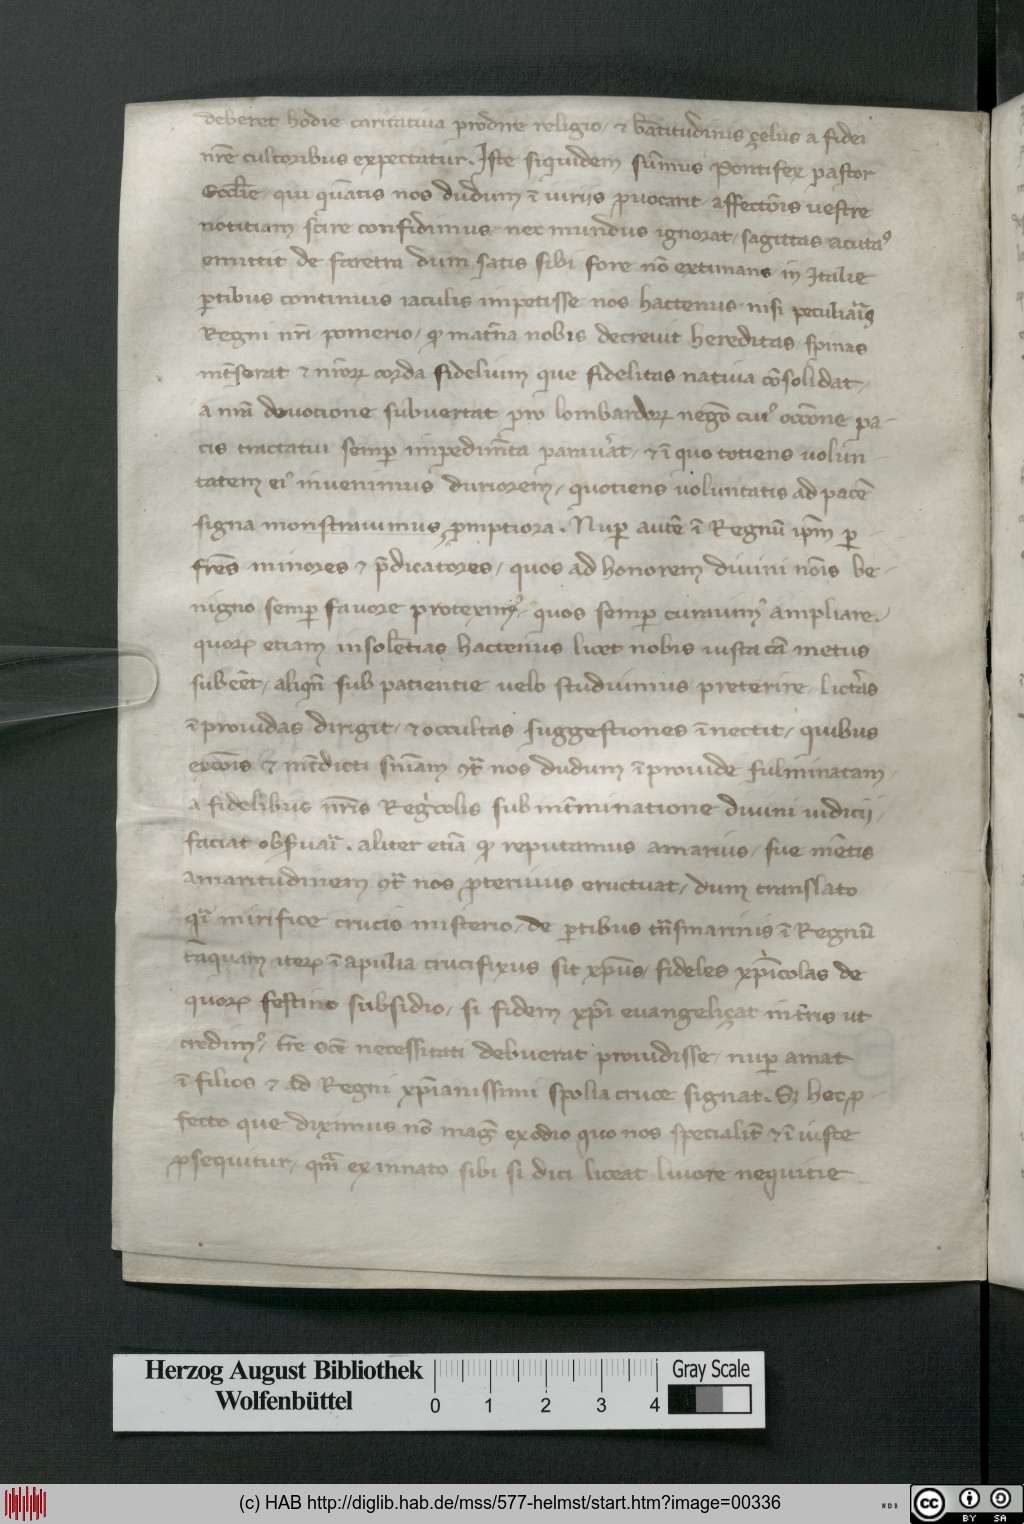 deberet hodie caritativa prodire religio / ⁊ b̄atitudinis çelus a fidei
nr̄e cultoribus expectatur. Iste siquidem sūmus Pontifex pastor
Eccl̄ie / qui quātis nos dudum ī iuriis p̱vocarit affectōis vestre
notitiam scire confidimus / nec mundus ignorat / sagittas acutaˢ
emittit de faretra dum satis sibi fore nō extimans in Italie
p̱tibus continuis iaculis impetisse nos hactenus nisi
Regni nr̄i pomerio / qᵈ mat̄na nobis decrevit hereditas / spinas
int̄serat ⁊ nr̄oꝝ corda fidelium que fidelitas nativa cōsolidat /
a nr̄a devocione subvertat pro lombardoꝝ negō cuiꝰ occōne pa-
cis tractatui semp̱ impedim̄ta parav̄at / ⁊ ī quo totiens volun-
tatem eiꝰ invenimus duriorem / quotiens voluntatis ad pacē
signa monstravimus p̱mptiora. Nup̱ autē ī Regnū ip̄m p̱
fr̄es minores ⁊ p̄dicatores / quos ad honorem divini nōis be-
nigno semp̱ favore proteximꝰ / quos semp̱ curavimꝰ ampliare /
quoꝝ etiam insolētias hactenus licet nobis iusta cā metus
subēet / aliqn̄ sub patientie velo studuimus preterire / lict̄as
īprovidas dirigit / ⁊ occultas suggestiones īnectit / quibus
exc̄ois ⁊ int̄dicti sn̄iam ꝯtᵃ nos dudum īprovide fulminatam /
a fidelibus nr̄is Regⁱcolis sub int̄minatione divini iudicii /
faciat obs̱varī. aliter etiā qᵈ reputamus amarius / sue mētis
amaritudinem ꝯtᵃ nos p̱tervius eructuat / dum translato
qᵃi mirifice crucis misterio / de p̱tibus tn̄smarinis ī Regnū
tāquam iteꝝ ī apulia crucifixus sit xp̄us / fideles xp̄icolas de
quoꝝ festino subsidio / si fidem xp̄i evangeliçat in t̄ris ut
credimꝰ / tr̄e sc̄e necessitati debuerat providisse / nup̱ armat
ī filios ⁊ ad Regni xp̄ianissimi spolia cruce signat. Sꝫ hec p̱-
fecto que diximus nō magᷤ ex odio quo nos specialit̄ ⁊ ī iuste
p̱sequitur / qm̄ ex innato sibi si dici liceat livore nequitie
Herzog August Bibliothek
Wolfenbüttel
0 1 2 3 4
Gray Scale
(c) HAB http://diglib.hab.de/mss/577-helmst/start.htm?image=00336
WDB
cc
BY SA